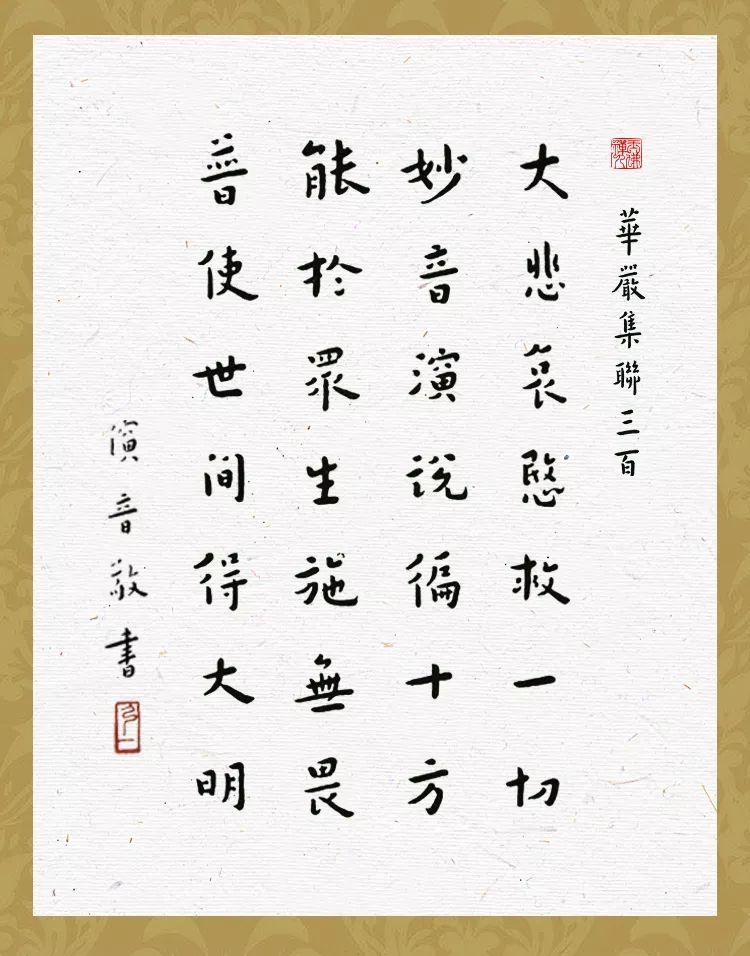 華嚴集聯三百
大悲哀愍救一切
妙音演說徧十方
能於眾生施無畏
普使世間得大明
音敬書
弘一